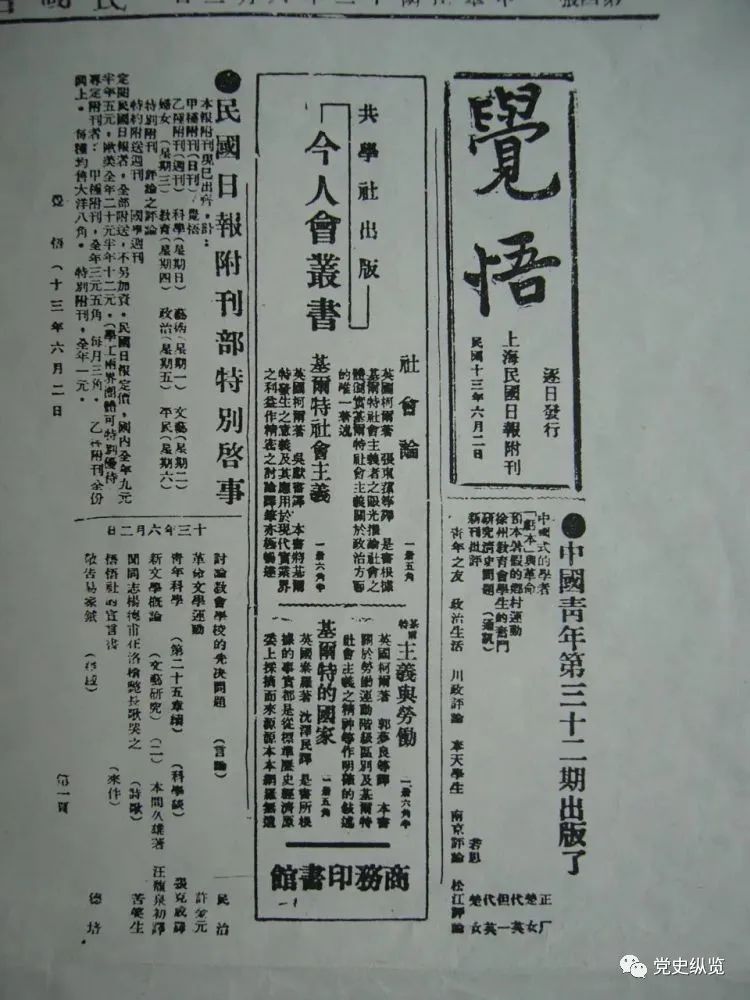 覺悟
逐日發行
上海民國日報附刊
民國十三年六月二日
●中國青年第三十二期出版了
中國式的學者
「虧本」與革命
預本暑假的鄉村運動
徐州教育會學生的奮鬥
研究清史問題(通訊)
新刊批評
青年之友 政治生活 川政評論 奉天學生 南京評論 松江評論
共學社出版
「今人會叢書」
社會論
一册五角
英國柯爾著 張東蓀等譯 是書根據
基爾特社會主義者之眼光撰論社會之
的唯一著述
基爾特社會主義
一册六角半
英國柯爾著 吳獻書譯 本書將基爾
特發生之意義及其應用於現代實業界
之利益作精密之討論譯筆亦極暢達
基爾特主義與勞働
一册六角半
英國柯爾著 郭夢良等譯 本書
關於勞働運動階級區別及基爾特
社會主義之精神等作明確的敍述
基爾特的國家
一册五角
英國泰羅著 沈澤民譯 是書所根
據的事實都是從標準歷史經濟原
委上採摘而來源源本本網羅無遺
商務印書館
●民國日報附刊部特別啓事
本報附刊現已出齊,計:
甲種附刊(日刊) 覺悟
乙種附刊(週刊) 科學(星期日) 藝術(星期一) 文藝(星期二)
婦女(星期三) 教育(星期四) 政治(星期五) 平民(星期六)
特別附刊 評論之評論
特約附送週刊 國學週刊
定閱民國日報者,全部附送,不另加資。民國日報定價,國內全年九元
半年五元,歐美全年二十元半年十二元。(學工兩界團體可特別優待
專定附刊者:甲種附刊,全年三元五角,每月三角。乙種附刊全份
同上。每種均售大洋八角。特別附刊,全年一元。
覺悟(十三年六月二日
十三年六月二日
討論教會學校的先决問題 (言論) 民治
革命文學運動 許金元
青年科學 (第二十五章續) (科學談) 張克成譯
新文學概論 (文藝研究) (二) 本間久雄著 汪馥泉初譯
聞同志楊德甫在洛槍斃長歌哭之 (詩歌) 苦葽生
悟悟社的宣言書 (來件)
敬告易家鉞 德培
第一頁
党史纵览